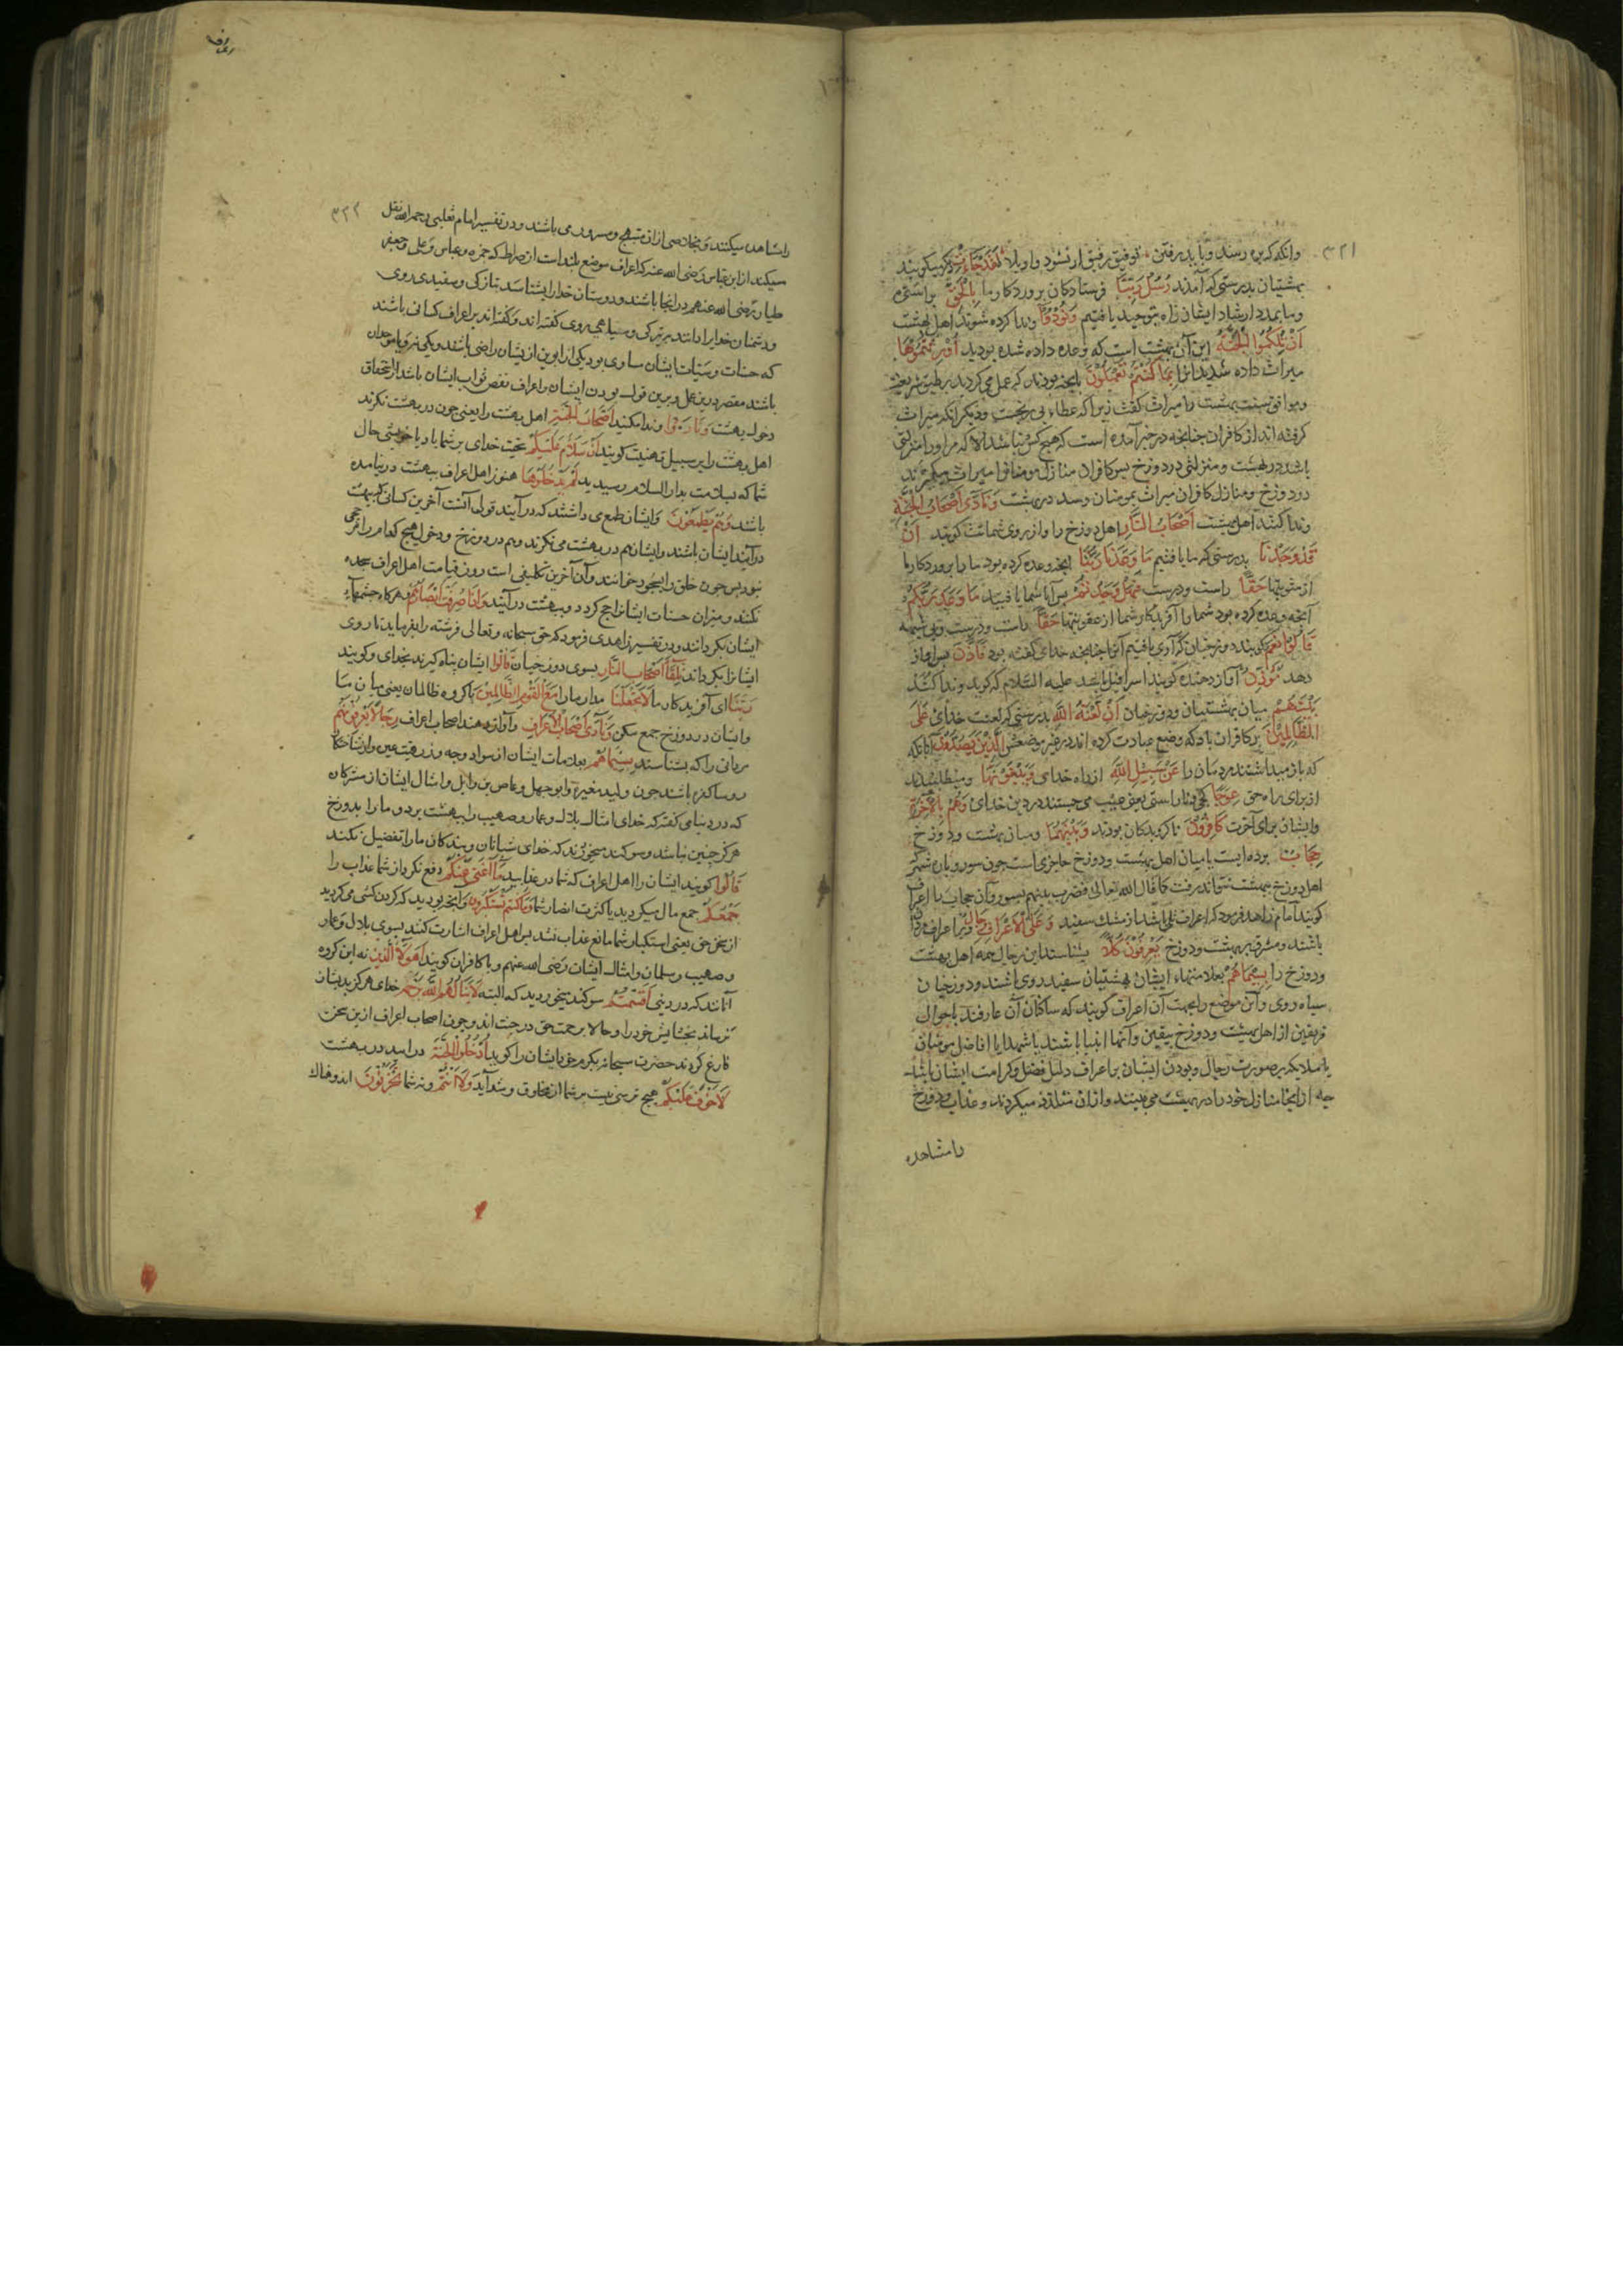 ٣٢١
وانکه که بره رسند وباید رفتن توفیق رفیق او نشود واویلا لَقَدْ جَاءَتْ میکویند
بهشتیان بدرستی که آمدند رُسُلُ رَبِّنَا فرستادکان پروردکار ما بِالْحَقِّ براستی
وما بمدد ارشاد ایشان راه بتوحید یافتیم وَنُودُوا وندا کرده شوند اهل بهشت
اَنْ تِلْكُمُوا الْجَنَّةُ این آن بهشت است که وعده داده شده بودید اُورِثْتُمُوهَا
میراث داده شدید آنرا بِمَا كُنْتُمْ تَعْمَلُونَ بآنچه بودید که عمل می کردید بر طبق شریعت
بهشت را میراث کفت زیرا که عطاء بی رنجست ودیکر آنکه میراث
کرفته اند از کافران چنانچه در خبر آمده است که هیچ کس نباشد الا که مر او را منزلتی
باشد در بهشت ومنزلتی در دوزخ پس کافران منازل مومنان را میراث میکیرند
در دوزخ ومنازل کافران میراث بمومنان رسد در بهشت وَنَادَى اَصْحَابُ الْجَنَّةِ
وندا کنند اهل بهشت اَصْحَابَ النَّارِ اهل دوزخ را واز روی شماتت کویند اَنْ
قَدْ وَجَدْنَا بدرستی که ما یافتیم مَا وَعَدَنَا رَبُّنَا آنچه وعده کرده بود ما را پروردکار ما
از مثوبتها حَقًّا راست ودرست فَهَلْ وَجَدْتُمْ پس آیا شما یافتید مَا وَعَدَ رَبُّكُمْ
آنچه وعده کرده بود شما را آفریدکار شما از عقوبتها حَقًّا راست ودرست وبی شبهه
قَالُوا نَعَمْ کویند دوزخیان که آری یافتیم آنرا چنانچه خدای کفته بود فَاَذَّنَ پس آواز
دهد مُؤَذِّنٌ آواز دهنده کویند اسرافیل باشد علیه السلام که کوید وندا کند
بَيْنَهُمْ میان بهشتیان ودوزخیان اَنْ لَعْنَةُ اللّٰهِ بدرستی که لعنت خدای عَلَى
الظَّالِمِينَ بر کافران باد که وضع عبادت کرده اند در غیر موضعش الَّذِينَ يَصُدُّونَ آنانکه
که باز میداشتند مردمان را عَنْ سَبِيلِ اللّٰهِ از راه خدای وَيَبْغُونَهَا ومیطلبیدند
از برای راه حق عِوَجًا کجی وناراستی یعنی عیب می جستند در دین خدای وَهُمْ بِالْاٰخِرَةِ
وایشان برای آخرت كَافِرُونَ ناکرویدکان بودند وَبَيْنَهُمَا ومیان بهشت ودوزخ
حِجَابٌ پرده ایست یا میان اهل بهشت ودوزخ حاجزی است چون سور وباره شهر که
اهل دوزخ ببهشت نتوانند رفت کما قال الله تعالی فضرب بینهم بسور وآن حجاب را اعراف
کویند امام زاهد فرمود که اعراف تلی باشد از مشک سفید وَعَلَى الْاَعْرَافِ رِجَالٌ وبر اعراف مردان
باشند ومشرف بر بهشت ودوزخ يَعْرِفُونَ كُلًّا بشناسند این رجال همه اهل بهشت
ودوزخ را بِسِيمَاهُمْ بعلامتهاء ایشان بهشتیان سفید روی باشند ودوزخیان
سیاه روی وآن موضع را بجهت آن اعراف کویند که ساکنان آن عارفند باحوال
فریقین از اهل بهشت ودوزخ بیقین وآنها انبیا باشند یا شهدا یا افاضل مومنان
یا ملایکه بر صورت رجال وبودن ایشان بر اعراف دلیل فضل وکرامت ایشان باشد
چه از آنجا منازل خود را در بهشت می بینند واز آن متلذذ میکردند وعذاب دوزخ
را مشاهده
اعراف
٣٢٢
را مشاهده میکنند و بخلاصی از آن مبتهج ومسرور می باشند ودر تفسیر امام ثعلبی رحمه الله نقل
میکند از ابن عباس رضی الله عنه که اعراف موضع بلند است از صراط که حمزه وعباس وعلی وجعفر
طیار رضی الله عنهم در آنجا باشند ودوستان خدا را بشناسند بتازکی وسفیدی روی
ودشمنان خدا را دانند بتیرکی وسیاهی روی کفته اند وکفته اند بر اعراف کسانی باشند
که حسنات وسیّات ایشان مساوی بود یکی از ابوین از یشان راضی باشد ویکی نه
باشند مقصر در عمل وبرین قول بودن ایشان بر اعراف نقص ثواب ایشان باشد از استحقاق
دخول بهشت وَنَادَوْا وندا کنند اَصْحَابَ الْجَنَّةِ اهل بهشت را یعنی چون در بهشت نکرند
اهل بهشت را بر سبیل تهنیت کویند اَنْ سَلَامٌ عَلَيْكُمْ تحیت خدای بر شما باد یا خوشی حال
شما که بسلامت بدار السلام رسیدید لَمْ يَدْخُلُوهَا هنوز اهل اعراف ببهشت در نیامده
باشند وَهُمْ يَطْمَعُونَ وایشان طمع می داشتند که در آیند قولی آنست آخرین کسانی که ببهشت
در آیند ایشان باشند وایشان هم در بهشت می نکرند وهم در دوزخ
بود پس چون خلق را بسجود خوانند وآن آخرین تکلیفی است روز قیامت اهل اعراف سجده
نکنند ومیزان حسنات ایشان راجح کردد وببهشت در آیند وَاِذَا صُرِفَتْ اَبْصَارُهُمْ وهرکاه چشمهاء
ایشان بکردانند ودر تفسیر زاهدی فرمود که حق سبحانه وتعالی فرشته را بفرماید تا روی
ایشانرا بکرداند تِلْقَاءَ اَصْحَابِ النَّارِ بسوی دوزخیان قَالُوا ایشان پناه کیرند بخدای وکویند
رَبَّنَا ای آفریدکار ما لَا تَجْعَلْنَا مدار ما را مَعَ الْقَوْمِ الظَّالِمِينَ با کروه ظالمان یعنی میان ما
وایشان در دوزخ جمع مکن وَنَادَى اَصْحَابُ الْاَعْرَافِ وآواز دهند اصحاب اعراف رِجَالًا يَعْرِفُونَهُمْ
مردانی را که بشناسند بِسِيمَاهُمْ بعلامات ایشان از سواد وجه وزرقت عین
روساء کفره باشند چون ولید مغیره وابو جهل وعاص بن وائل وامثال ایشان از مشرکان
که در دنیا می کفتند که خدای امثال بلال وعمار وصهیب را ببهشت برد وما را بدوزخ
هرکز چنین نباشد وسوکند میخوردند که خدای شبانان وبندکان ما را تفضیل نکند
قَالُوا کویند ایشان را اهل اعراف که شما در عذابید مَا اَغْنَى عَنْكُمْ دفع نکرد از شما عذاب را
جَمْعُكُمْ جمع مال میکردید یا کثرت انصار شما وَمَا كُنْتُمْ تَسْتَكْبِرُونَ وآنچه بودید که کردن کشی می کردید
از سخن حق یعنی استکبار شما مانع عذاب نشد پس اهل اعراف اشارت کنند بسوی بلال وعمار
وصهیب وسلمان وامثال ایشان رضی الله عنهم وبا کافران کویند اَهٰؤُلَاءِ الَّذِينَ نه این کروه
آنانند که در دنیی اَقْسَمْتُمْ سوکند میخوردید که البته لَا يَنَالُهُمُ اللّٰهُ بِرَحْمَةٍ خدای هرکز بدیشان
نرساند بخشایش خود را وحالا برحمت حق در جنت اند وچون اصحاب اعراف ازین سخن
فارغ کردند حضرت سبحانه بکرم خود ایشان را کوید اُدْخُلُوا الْجَنَّةَ در آیید در بهشت
لَا خَوْفٌ عَلَيْكُمْ هیچ ترسی نیست بر شما از مخاوف وشدآید وَلَا اَنْتُمْ ونه شما تَحْزَنُونَ اندوهناک